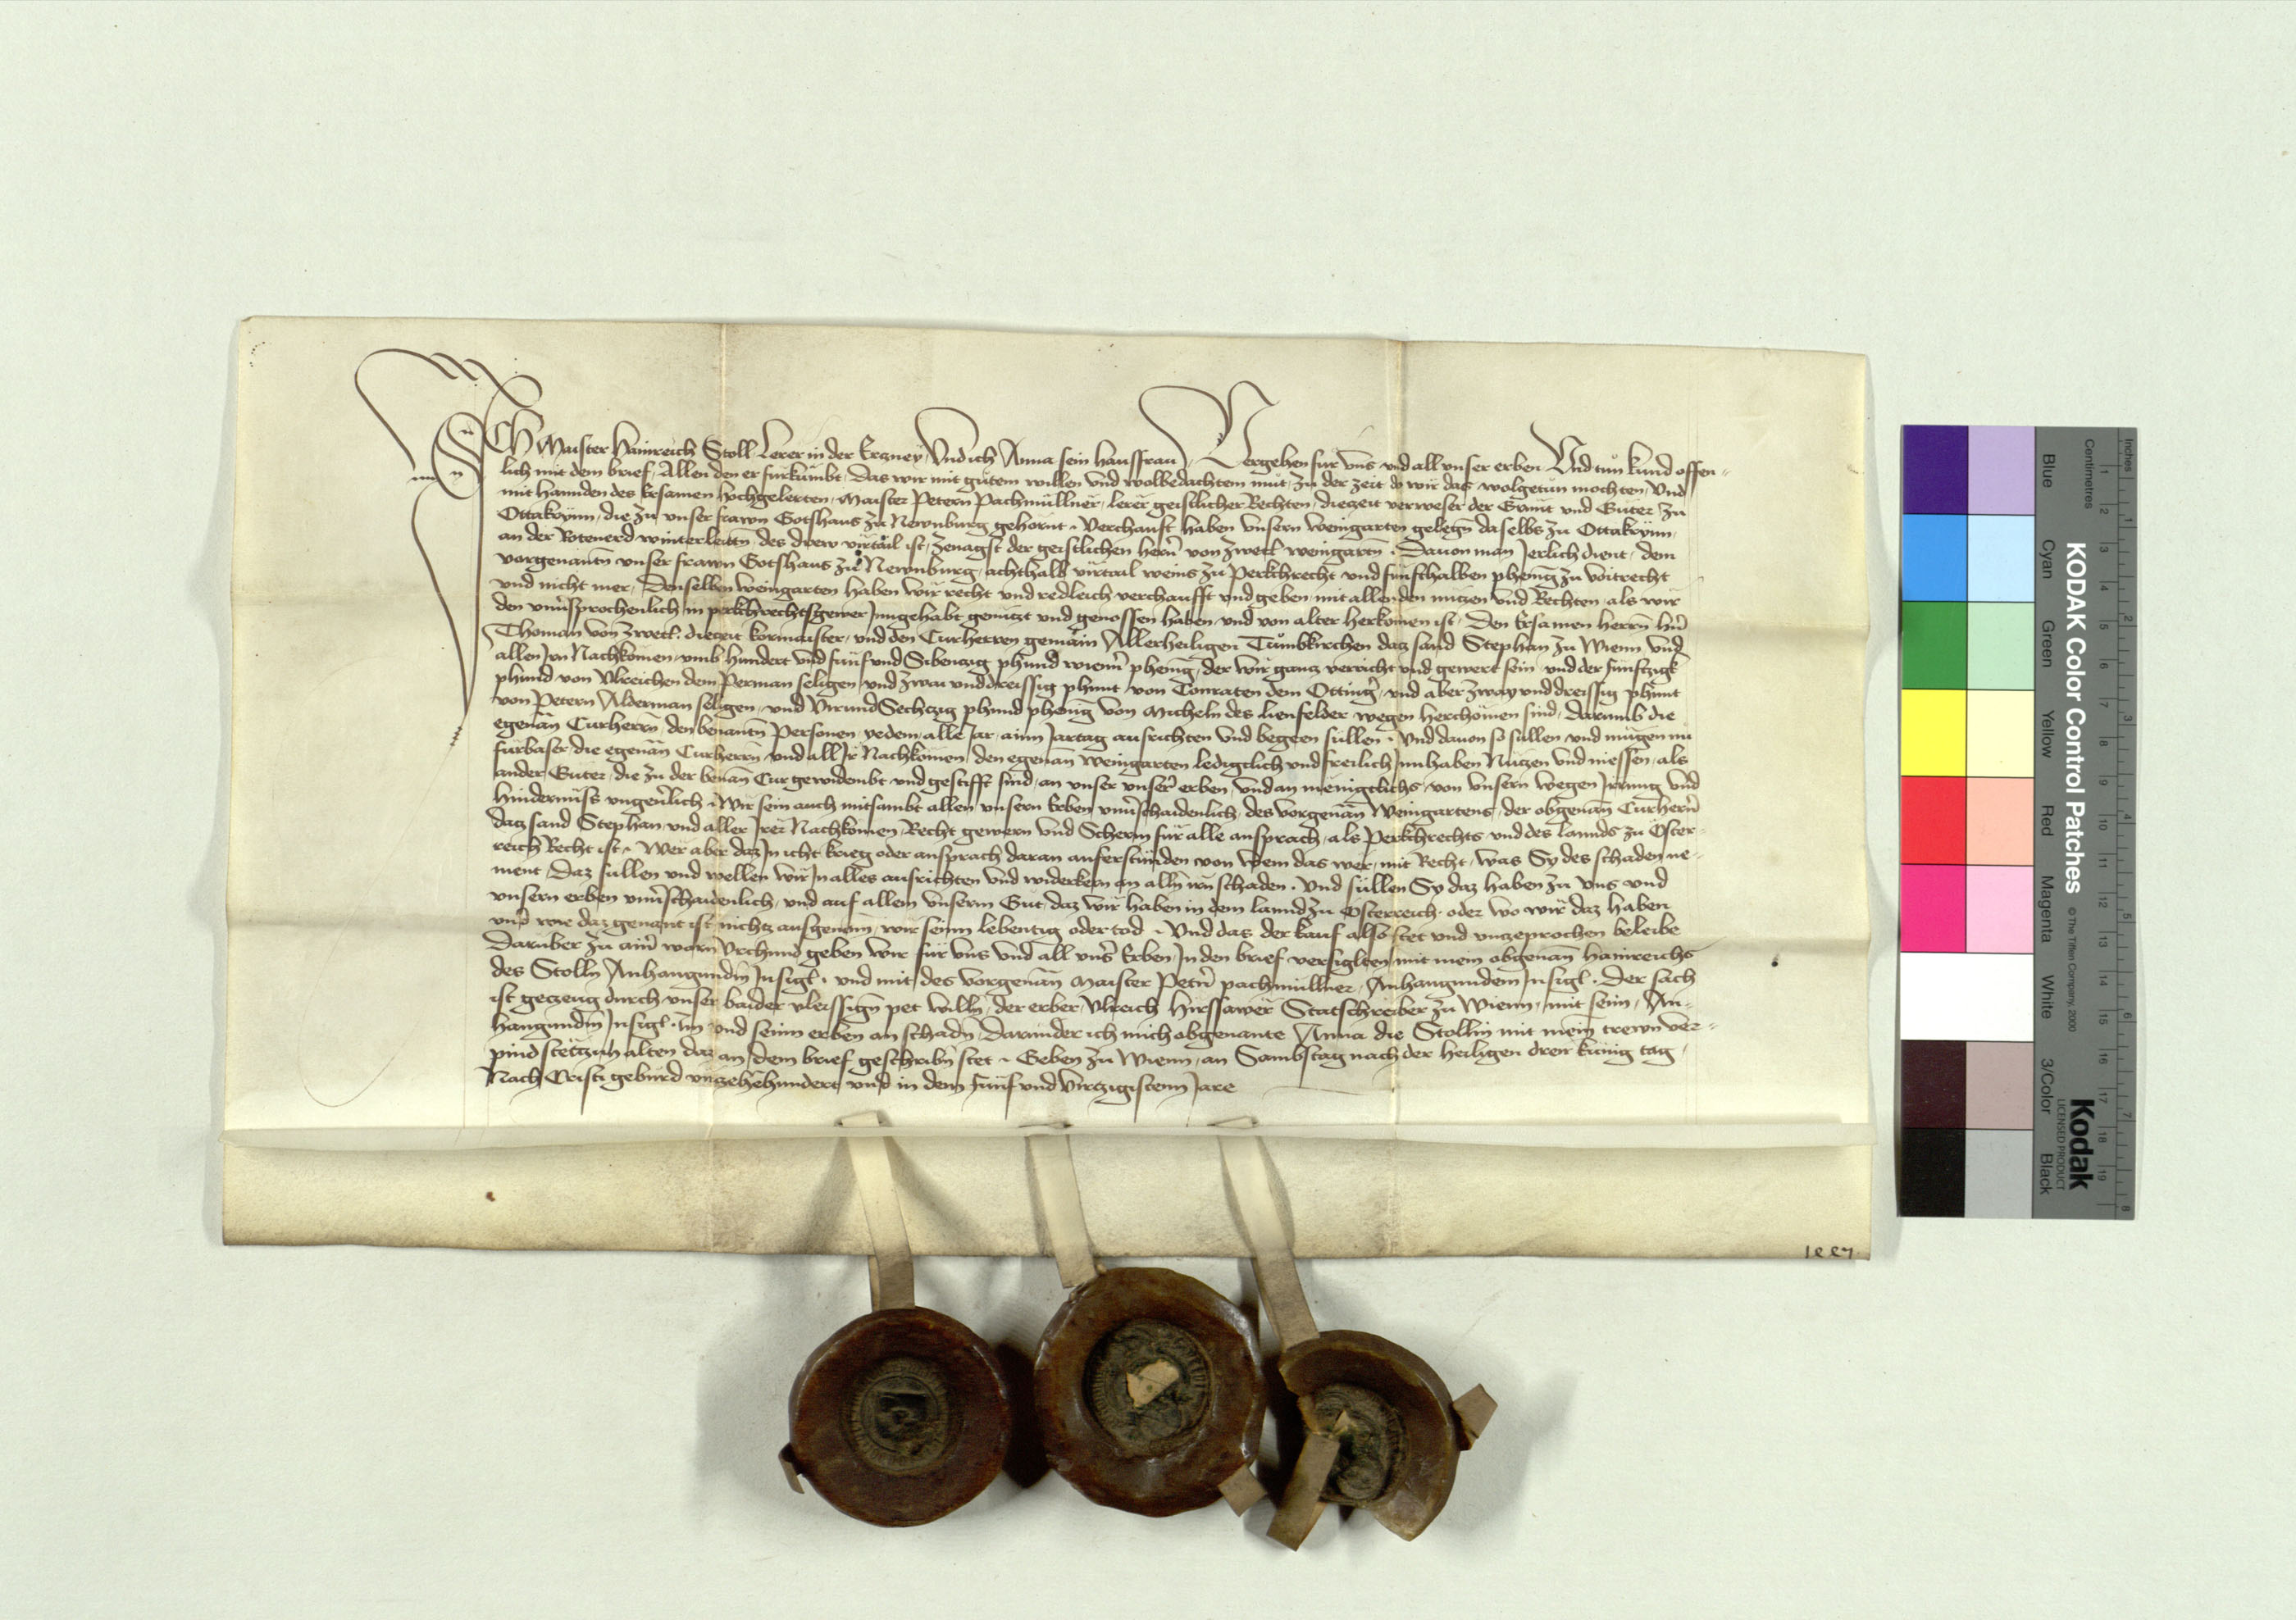 ICH Maister Hainreich Stoll Lerer in der Erczney Und ich Anna sein hausfraw Vergehen fur uns und all unser erben Und tun kund offen-
lich mit dem brief Allen den er furkumbt Das wir mit gutem willen und wolbedachtem mut zu der zeit do wir das wolgetun mochten Und
mit hannden des Ersamen hochgelerten Maister Petern Pachmullner lerer geistlicher Rechten diezeit verweser der Grunt und Guter zu
Ottakrynn die zu unser frawn Gotshaus zu Newnburg gehornt Verchauft haben unsern weingarten gelegn daselbs zu Ottakrynn
an der Rotenerd winterleittn des drew virtail ist zenagst der geistlichen hern von Zwetl weingartn Davon man Jerlich dient dem
vorgenantn unser frawn Gotshaus zu Newnburg achthalb virtail weins zu Perkchrecht und funfthalben phenig zu voitrecht
und nicht mer Denselben weingarten haben wir recht und redleich verchaufft und geben mit allen den nutzen und Rechten als wir
den unversprochenlich in perkchrechtsgewer Inngehabt genutzt und genossen haben und von alter herkomen ist Den Ersamen herrn hern
Thoman von Zwetl diezeit kormaister und den Curherren gemain Allerheiligen Tumbkirchen daz sand Stephan zu Wienn und
allen Iren Nachkomen umb hundert und funf und Sibenczig phund wienner phenig der wir gancz verricht und gewert sein und der funftzigk
phund von Ulreichen dem Perman seligen und zwai unddreissig phunt von Conraten dem Otting und aber zway und dreissig phunt
von Petern Alderman seligen und Virund Sechczig phund phenig von Micheln des lienfelder wegen herchomen sind Darumb die
egenan Curherrn den benantn Personen yedem alle Jar ainn Jartag ausrichten und begeen sullen Und davon so sullen und mugen nu
furbaser die egenan Curherrn und all Ir Nachkomen den egenan weingarten ledigclich und freilich Innhaben Nutzen und niessen als
ander Guter die zu der benan Cur gewidembt und gestifft sind an unser unser erben und an menigclichs von unsern wegen Irrung und
hindernuss ungeverlich Wir sein auch mitsambt allen unsern Erben unverschaidenlich des vorgenan Weingartens der obgenan Curhern
daz sand Stephan und aller Irer Nachkomen Recht gewern und Scherm fur alle ansprach als Perkchrechts und des lannds zu Oster-
reich Recht ist Wer aber daz In icht krieg oder ansprach daran auferstunden von wem das wer mit Recht was Sy des schaden ne-
ment Daz sullen und wellen wir In alles ausrichten und widerkern an alln irn schaden Und sullen Sy daz haben zu uns und
unsern erben unverschaidenlich und auf allem unserm Gut daz wir haben in dem lannd zu Osterreich oder wo wir daz haben
und wie daz genant ist nichtz ausgenom wir seinn lebentig oder tod Und das der kauf also stet und unzeprochen beleibe
Daruber zu aim warn Urchund geben wir fur uns und all uns Erben In den brief versiglten mit mein obgenan Hainreichs
des Stolln Anhangundm Insigl und mit des vorgenan Maister Petern pachmullner Anhangundem Insigl Der sach
ist geczeug durch unser baider vleissign pet willn der erber Ulreich Hirssawer Statschreiber zu Wienn mit seim An-
hangundm Insigl Im und seinn erben an schadn Darunder ich mich obgenante Anna die Stollin mit mein trewn ver-
pind stetzuhalten daz an dem brief geschribn stet Geben zu Wienn an Sambstag nach der heiligen dreir kunig tag
Nach Cristi geburd virzehehundert und in dem funf und virczigistenn Jare
KODAK Color Control Patches
© The Tiffen Company, 2000
Kodak
LICENSED PRODUCT
Blue Cyan Green Yellow Red Magenta White 3/Color Black
Inches 1 2 3 4 5 6 7 8
Centimetres 1 2 3 4 5 6 7 8 9 10 11 12 13 14 15 16 17 18 19